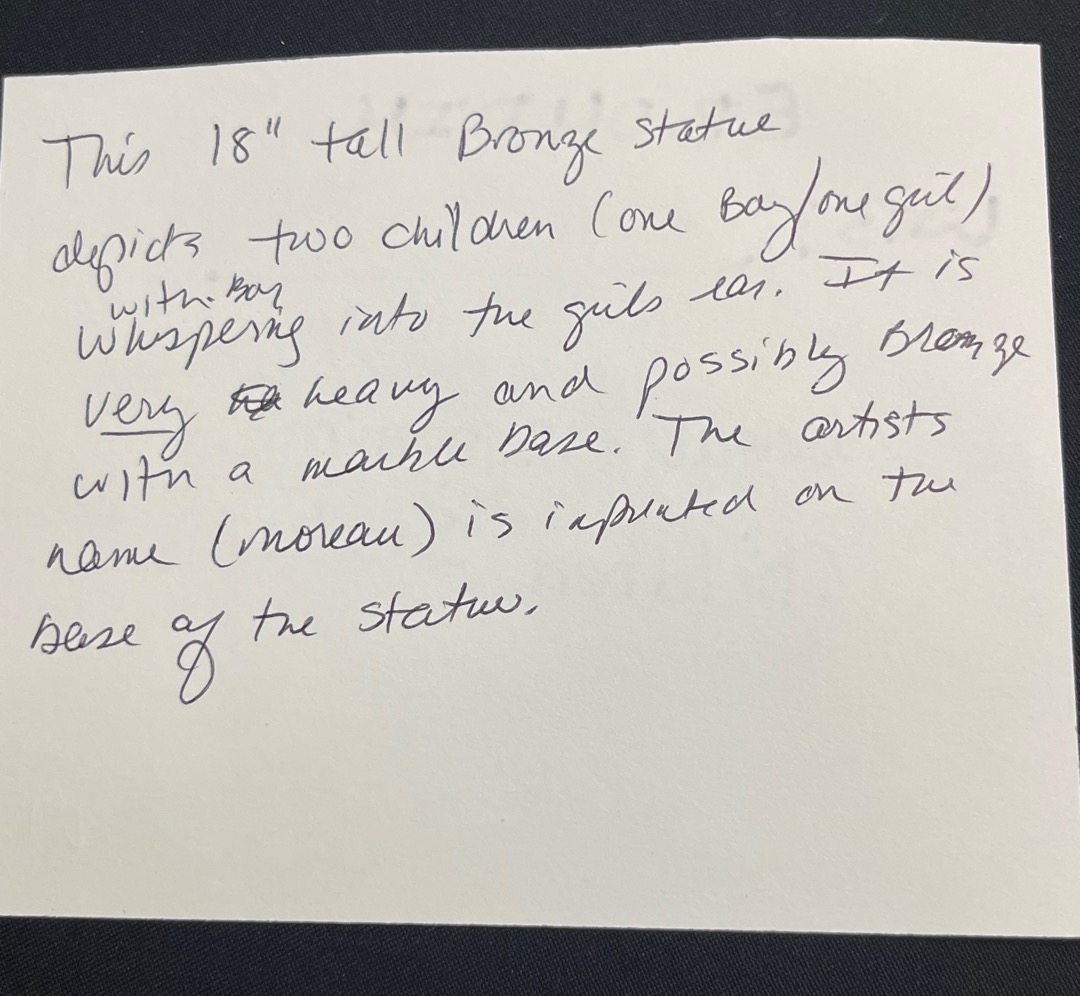 This 18" tall Bronze statue
depicts two children (one Boy/one girl)
with Boy
whispering into the girls ear. It is
very heavy and possibly Bronze
with a marble base. The artists
name (moreau) is inprinted on the
base of the statue.